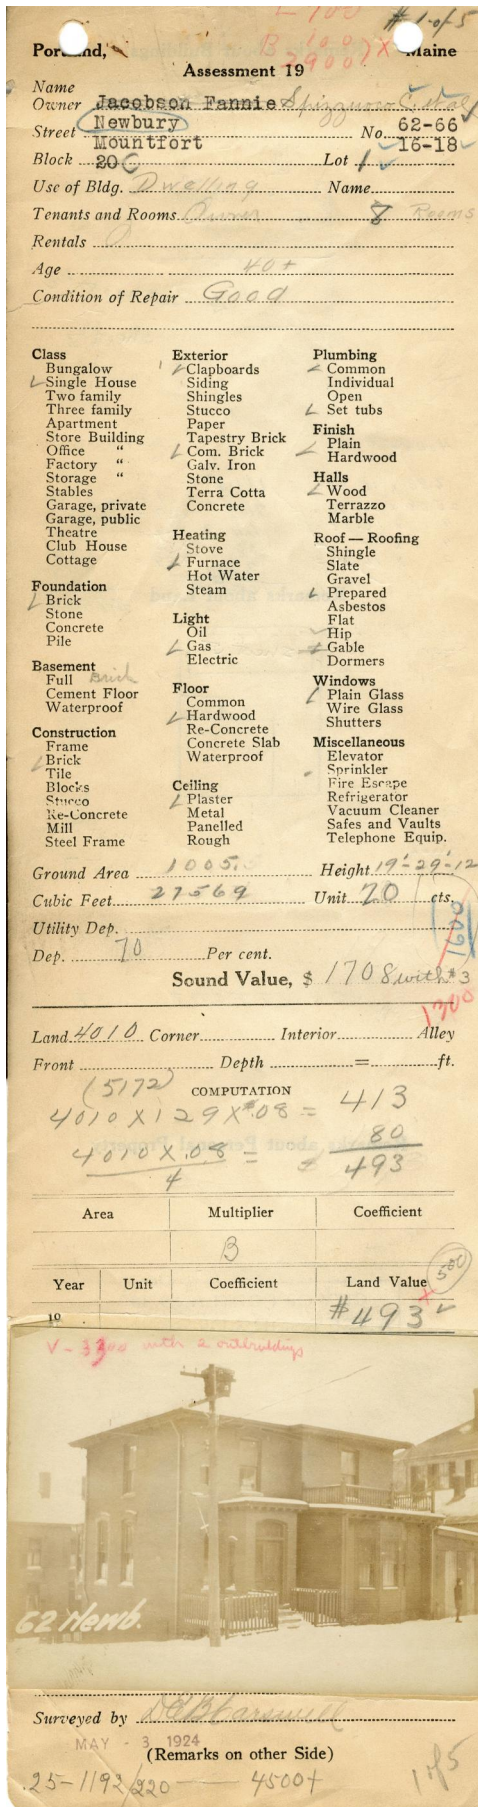 # 1 of 5
Portland, Maine
Assessment 19
Name
Owner Jacobson Fannie
Street Newbury No. 62-66
Mountfort 16-18
Block 20 C Lot 1
Use of Bldg. Dwelling Name
Tenants and Rooms Owner 8 Rooms
Rentals 0
Age 40+
Condition of Repair Good
Class
Bungalow
Single House
Two family
Three family
Apartment
Store Building
Office "
Factory "
Storage "
Stables
Garage, private
Garage, public
Theatre
Club House
Cottage
Foundation
Brick
Stone
Concrete
Pile
Basement
Full Brick
Cement Floor
Waterproof
Construction
Frame
Brick
Tile
Blocks
Stucco
Re-Concrete
Mill
Steel Frame
Exterior
Clapboards
Siding
Shingles
Stucco
Paper
Tapestry Brick
Com. Brick
Galv. Iron
Stone
Terra Cotta
Concrete
Heating
Stove
Furnace
Hot Water
Steam
Light
Oil
Gas
Electric
Floor
Common
Hardwood
Re-Concrete
Concrete Slab
Waterproof
Ceiling
Plaster
Metal
Panelled
Rough
Plumbing
Common
Individual
Open
Set tubs
Finish
Plain
Hardwood
Halls
Wood
Terrazzo
Marble
Roof — Roofing
Shingle
Slate
Gravel
Prepared
Asbestos
Flat
Hip
Gable
Dormers
Windows
Plain Glass
Wire Glass
Shutters
Miscellaneous
Elevator
Sprinkler
Fire Escape
Refrigerator
Vacuum Cleaner
Safes and Vaults
Telephone Equip.
Ground Area 1005.5 Height 19'-29'-12
Cubic Feet 27569 Unit 20 cts.
1600
Utility Dep.
Dep. 70 Per cent.
Sound Value, $ 1708 with #3
1300
Land 4010 Corner Interior Alley
Front Depth = ft.
(5172) COMPUTATION
4010 X 129 X .08 = 413
80
4010 X .08 = 493
4
Area Multiplier Coefficient
B
500
Year Unit Coefficient Land Value
19 $493
V - 3300 with 2 outbuildings
62 Newb.
Surveyed by
MAY - 3 1924
(Remarks on other Side)
25-1192/220 — 4500+ 1 of 5